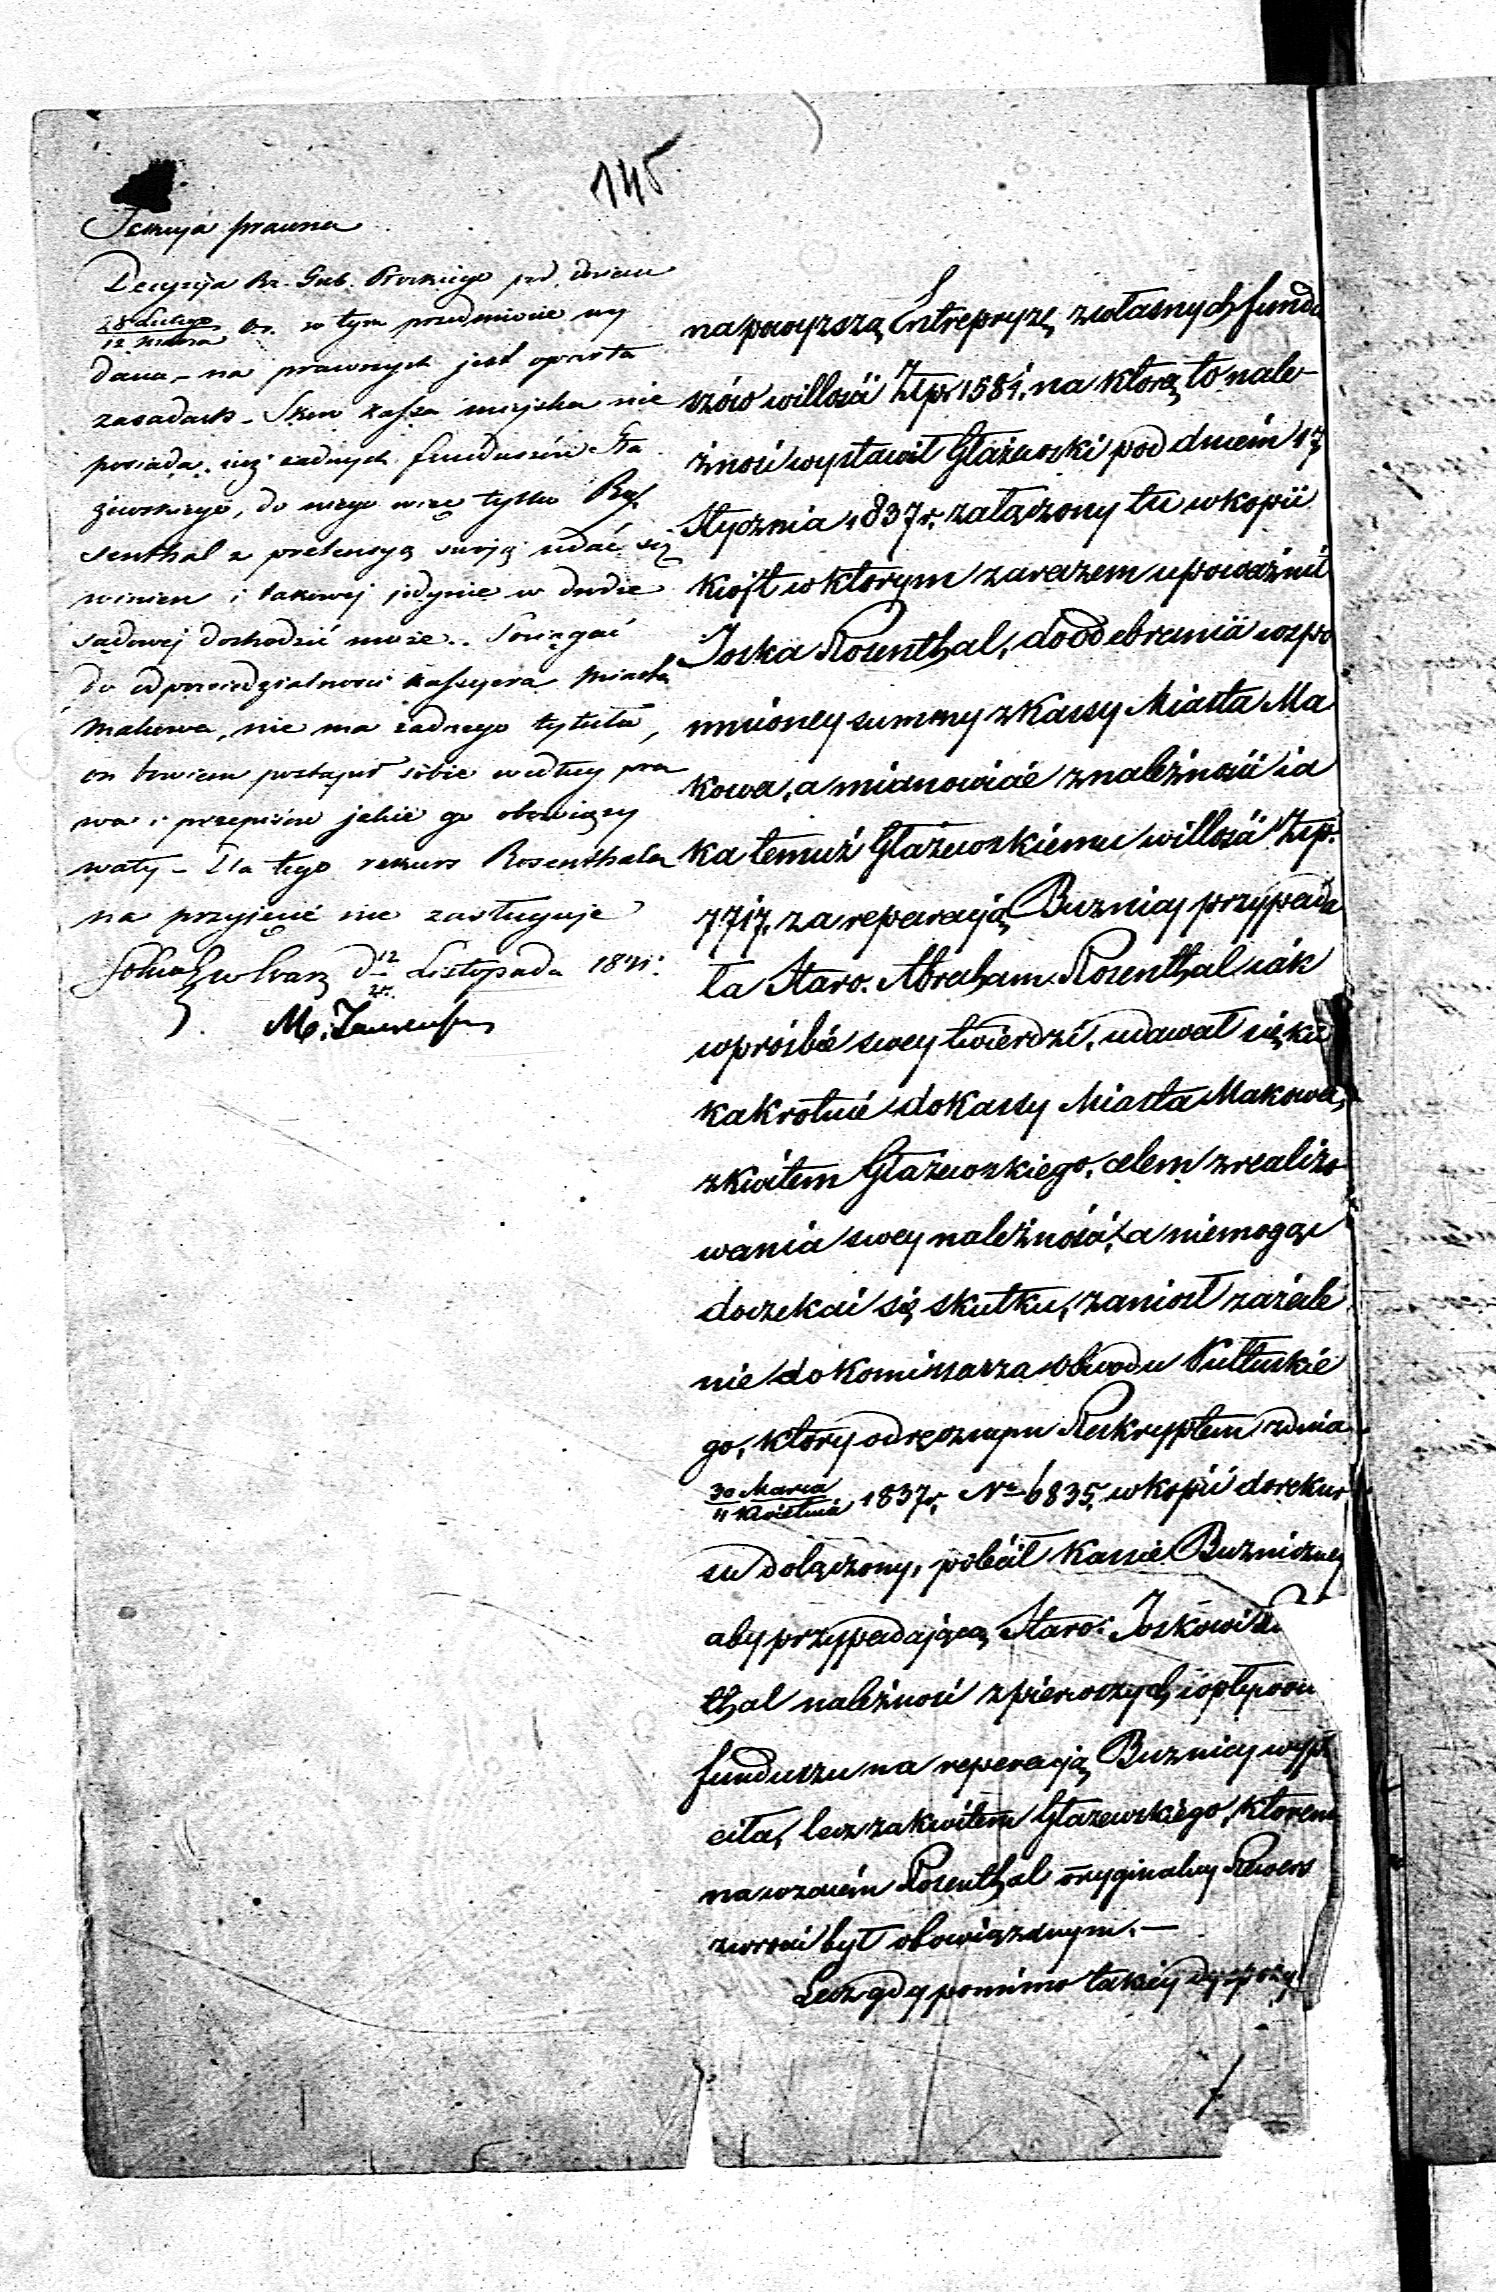 145
Sekcyja prawna
Decyzija Rz. Gub. Płockiego pod dniem
28 Lutego / 12 Marca br. w tym przedmiocie wy
dana – na prawnych jest oparta
zasadach – Skoro kassa miejska nie
posiada już żadnych funduszów Gła
żewskiego, do niego więc tylko Ro
senthal z pretensyą swoją udać się
winien i takowej jedynie w drodze
sądowej dochodzić może. Sciągać
do odpowiedzialnosci kassyera Miasta
Makowa, nie ma żadnego tytułu,
on bowiem postąpił sobie według pra
wa i przepisów jakie go obowiązy
wały – Dla tego rekurs Rosenthala
na przyjęcie nie zasługuje
d 12/24 Listopada 1841.
na powyzszą Entrepryzę z własnych fundu
szów w illości Złp 1584, na którą to nale-
żność wystawił Głażewski pod dniem 17
Stycznia 1837 r. załączony tu w kopii
kwit w ktorym zarazem upoważnił
Joska Rosenthal, do odebrania wspo
mnioney summy z Kassy Miasta Ma
kowa, a mianowicie z należności ia
ka temuż Głażewskiemu w illości Złp.
7717, za reparacją Buznicy przypada
ła Staro. Abraham Rosenthal iák
w prośbie swey twierdzi, udawał się kil
kakrotnie do kassy Miasta Makowa,
z kwitem Głażewskiego, celem zrealizo
wania swey należności, a niemogąc
doczekać się skutku, zaniosł zażale
nie do Kommissarza Obwodu Pułtuskie
go, który odręcznym Reskryptem z dnia
30 Marca / 11 Kwietnia 1837 r. No 6835, w kopii do rekur
su dołączony, polecił Kassie Buzniczney
aby przypadającą Staro: Joskowi
thal należność z pierwszych
funduszu na reperacją Buznicy wypł
ciła, lecz za kwitem Głazewskiego, ktorem
nawzaiem Rosenthal oryginalny Rewers
zwrocić był obowiązanym. —
Lecz gdy pomimo takiey dyspozy